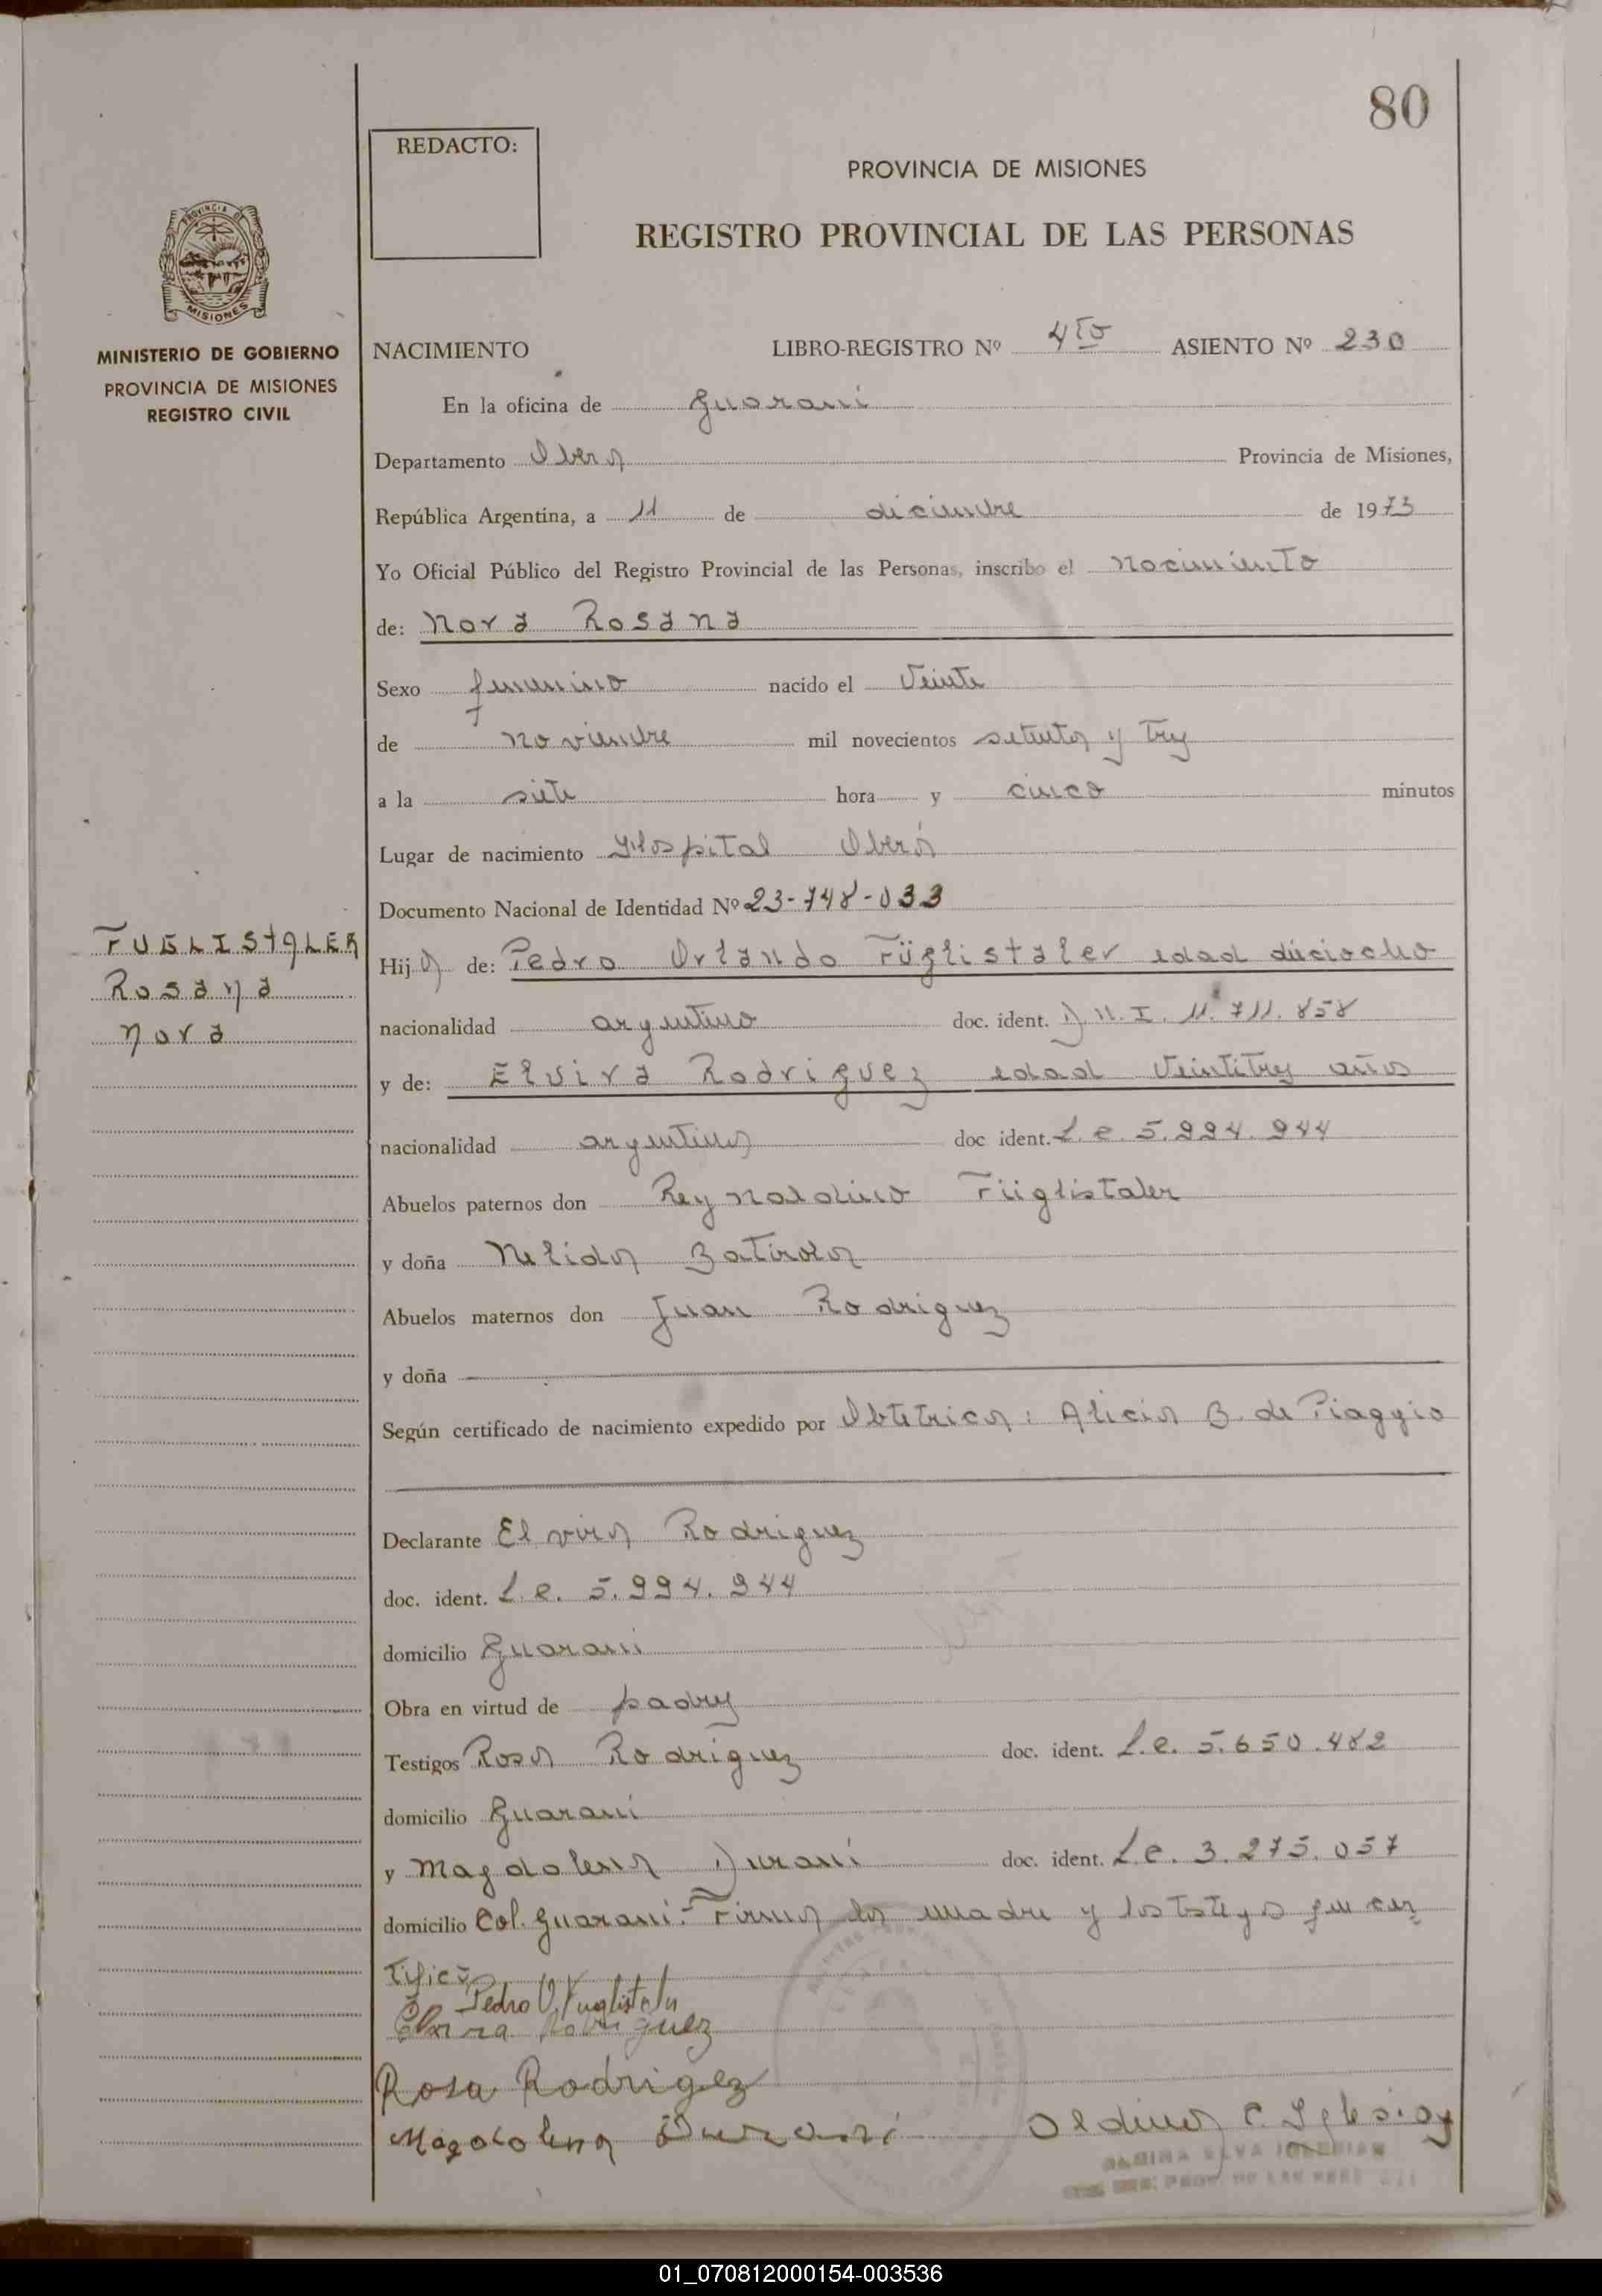 80
REDACTO:
PROVINCIA DE MISIONES
REGISTRO PROVINCIAL DE LAS PERSONAS
PROVINCIA DE
MISIONES
MINISTERIO DE GOBIERNO
PROVINCIA DE MISIONES
REGISTRO CIVIL
NACIMIENTO LIBRO-REGISTRO Nº 4to ASIENTO Nº 230
En la oficina de Guarani
Departamento Oberá Provincia de Misiones,
República Argentina, a 11 de diciembre de 1973
Yo Oficial Público del Registro Provincial de las Personas, inscribo el nacimiento
de: Nora Rosana
Sexo femenino nacido el Veinte
de noviembre mil novecientos setenta y Tres
a la siete hora y cinco minutos
Lugar de nacimiento Hospital Oberá
Documento Nacional de Identidad Nº 23-748-033
FUGLISTALER
Rosana
Nora
Hija de: Pedro Orlando Füglistaler edad dieciocho
nacionalidad argentino doc. ident. D.N.I. 11.711.858
y de: Elvira Rodriguez edad Veintitres años
nacionalidad argentina doc ident. L.C. 5.994.944
Abuelos paternos don Reynaldino Füglistaler
y doña Nelida
Abuelos maternos don Juan Rodriguez
y doña
Según certificado de nacimiento expedido por Obtetrica: Alicia B. de Piaggio
Declarante Elvira Rodriguez
doc. ident. L.C. 5.994.944
domicilio Guarani
Obra en virtud de padres
Testigos Rosa Rodriguez doc. ident. L.C. 5.650.482
domicilio Guarani
y Magdalena Durani doc. ident. L.C. 3.275.057
domicilio Col. Guarani.- Firma la madre y los testigos que cer
tifica
Pedro O. Fuglistaler
Elvira Rodriguez
Rosa Rodrigez
Magdalena Durani Oldina E. Iglesias
01_070812000154-003536